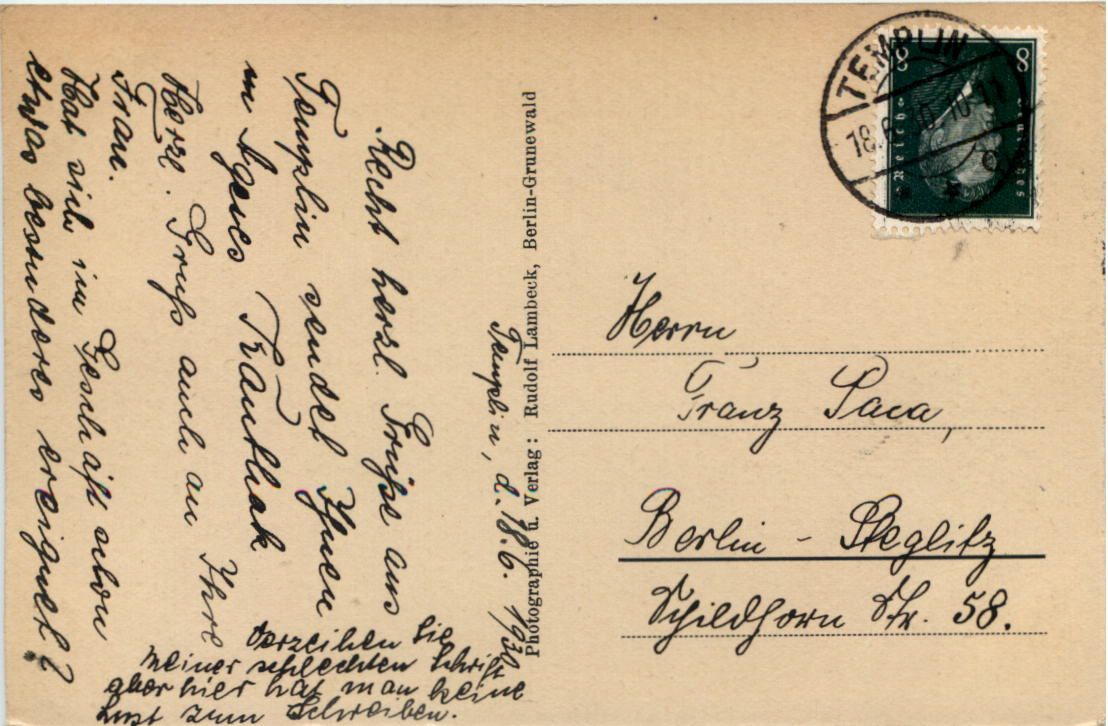 Templin, d. 18.6. 1930
Recht herzl. Grüße aus
Templin sendet Ihnen
Agnes
Herzl. Gruß auch an Ihre
Frau.
Hat sich im Geschäft schon
etwas besonderes ereignet?
Verzeihen Sie
meiner schlechten Schrift
aber hier hat man keine
Lust zum Schreiben.
Photographie u. Verlag: Rudolf Lambeck, Berlin-Grunewald
TEMPLIN
18.6.30. 10-11
8 8
Deutsches Reich
Herrn
Franz
Berlin - Steglitz
Schildhorn Str. 58.